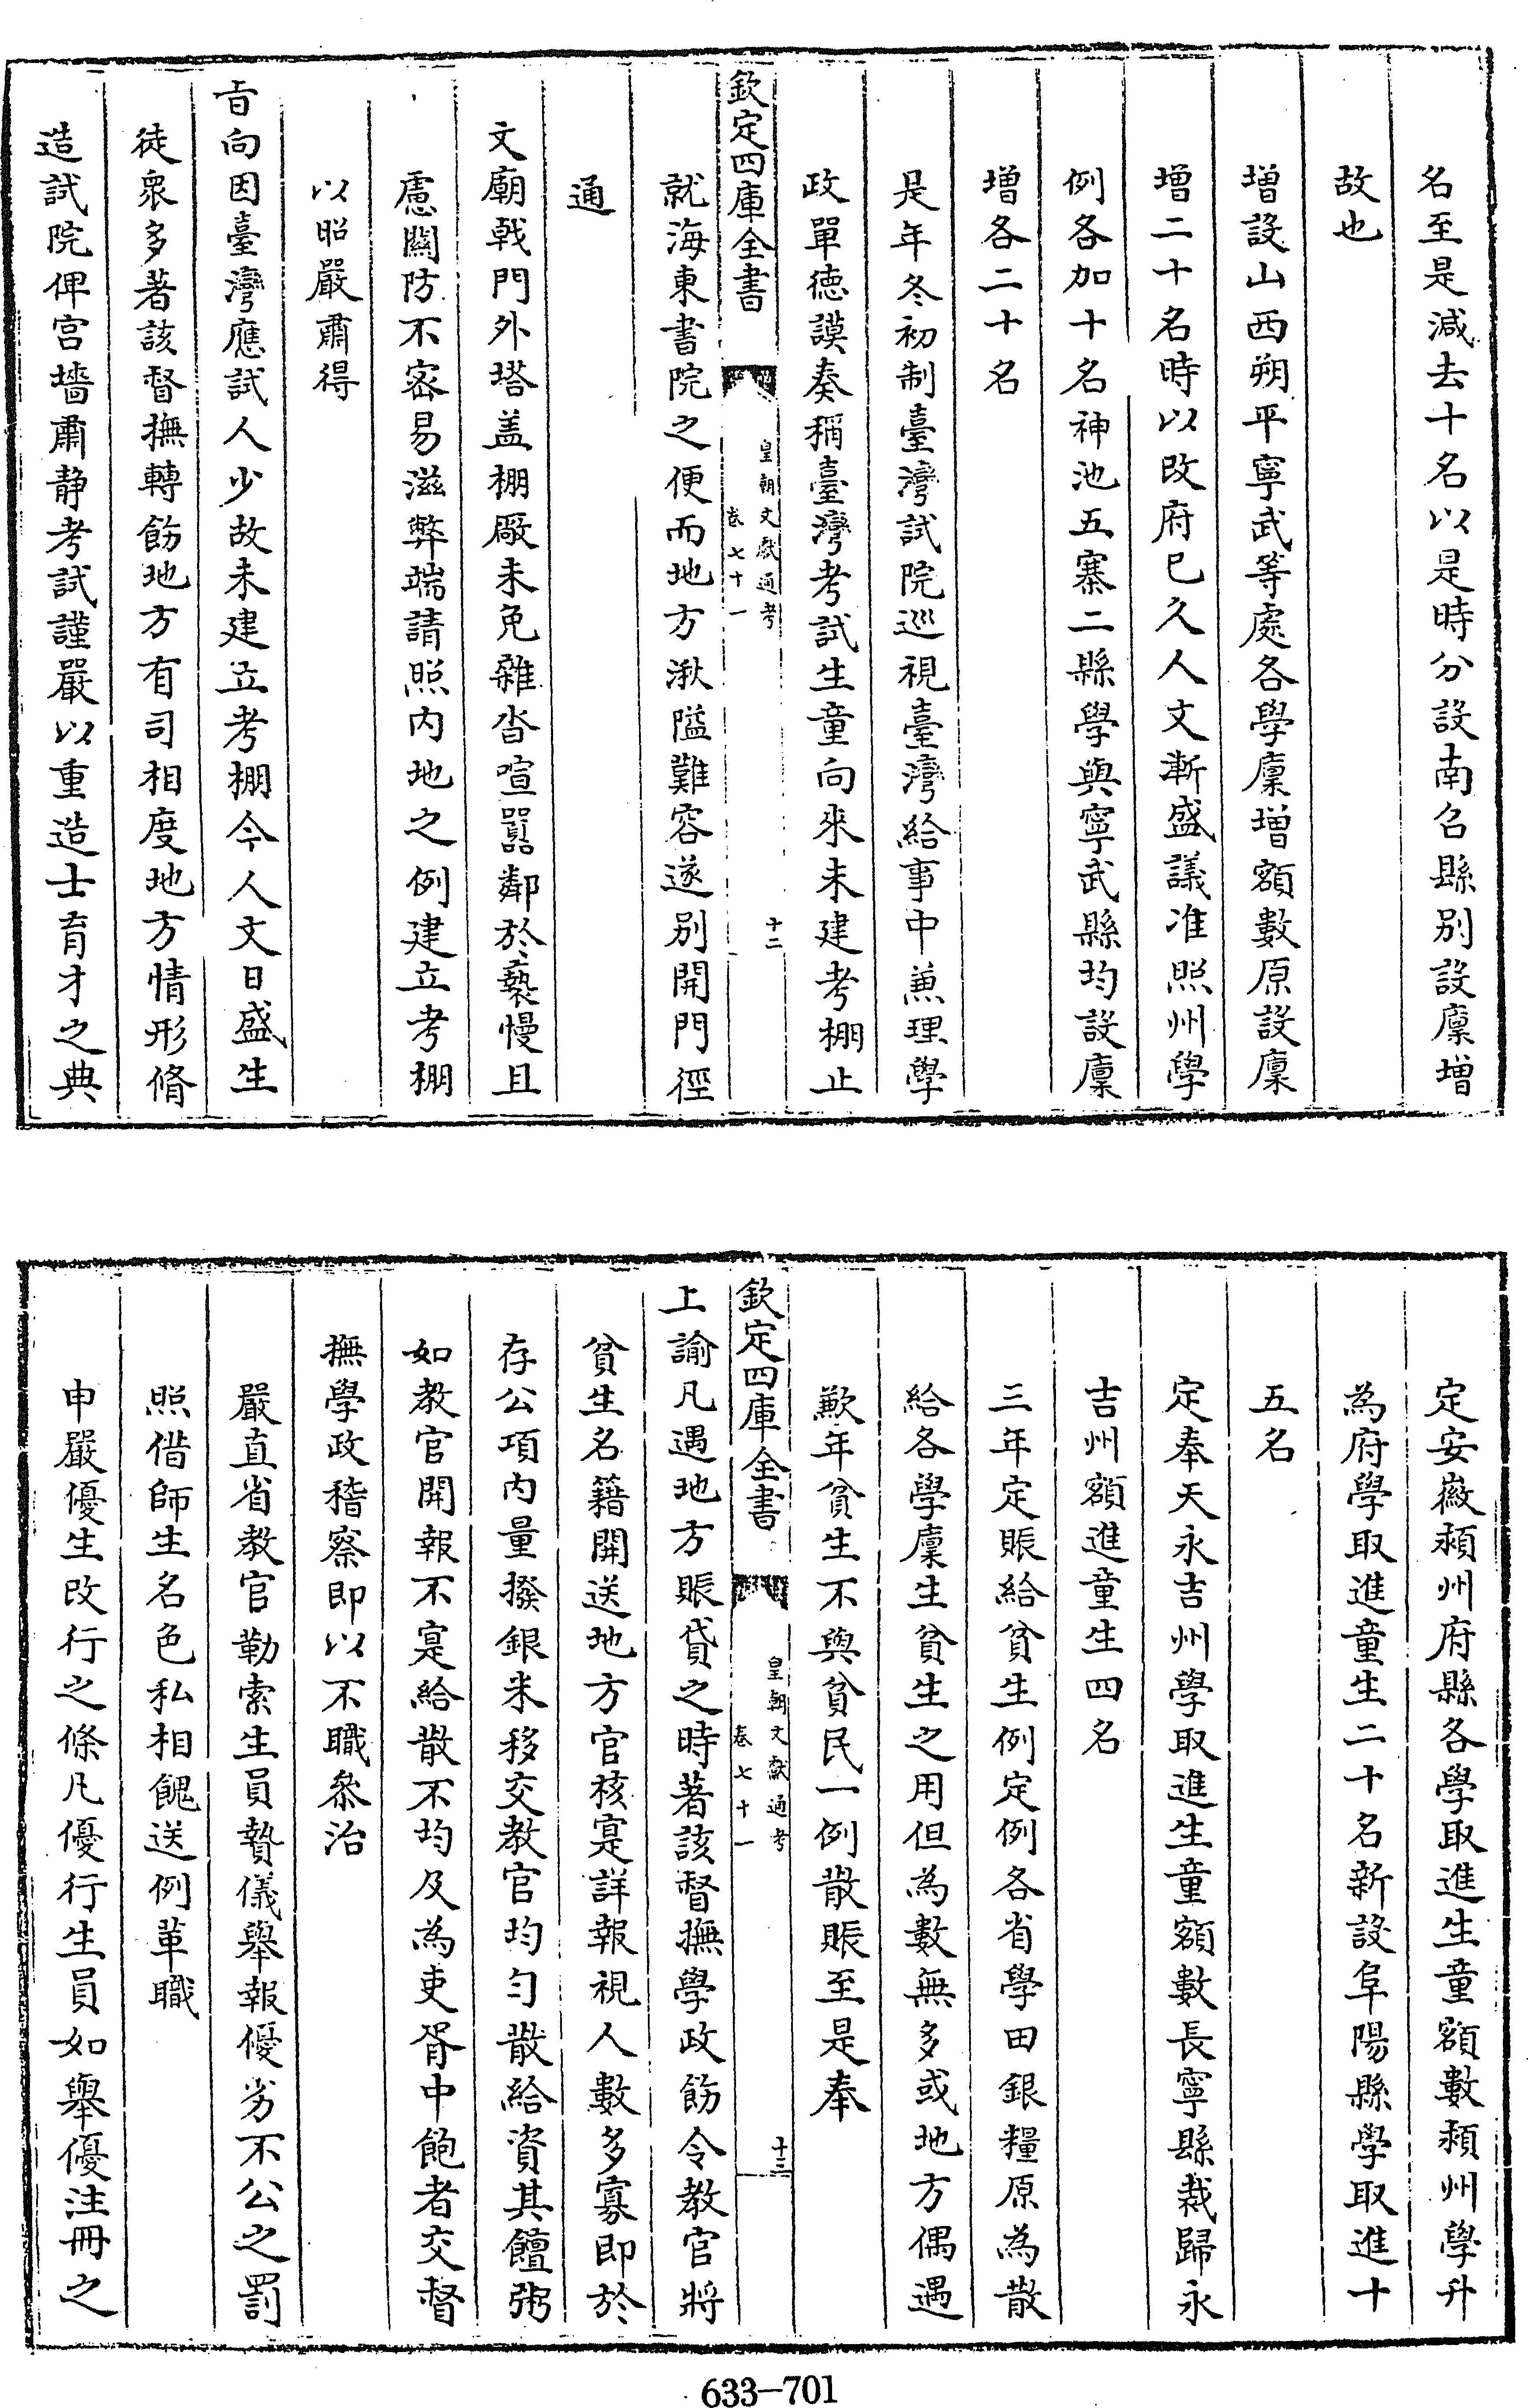 名至是減去十名以是時分設南召縣別設廩增
故也
增設山西朔平寧武等處各學廩增額數原設廩
增二十名時以改府已久人文漸盛議准照州學
例各加十名神池五寨二縣學與寧武縣均設廩
增各二十名
是年冬初制臺灣試院巡視臺灣給事中兼理學
政單德謨奏稱臺灣考試生童向來未建考棚止
欽定四庫全書
皇朝文獻通考
卷七十一
十二
就海東書院之便而地方湫隘難容遂別開門徑
通
文廟戟門外塔盖棚厰未免雜沓喧嚣鄰於褻慢且
慮關防不密易滋弊端請照內地之例建立考棚
以昭嚴肅得
旨向因臺灣應試人少故未建立考棚今人文日盛生
徒衆多著該督撫轉飭地方有司相度地方情形脩
造試院俾宫墻肅静考試謹嚴以重造士育才之典
定安徽頴州府縣各學取進生童額數頴州學升
為府學取進童生二十名新設阜陽縣學取進十
五名
定奉天永吉州學取進生童額數長寧縣裁歸永
吉州額進童生四名
三年定賑給貧生例定例各省學田銀糧原為散
給各學廩生貧生之用但為數無多或地方偶遇
歉年貧生不與貧民一例散賑至是奉
欽定四庫全書
皇朝文獻通考
卷七十一
十三
上諭凡遇地方賑貸之時著該督撫學政飭令教官將
貧生名籍開送地方官核寔詳報視人數多寡即於
存公項内量撥銀米移交教官均勻散給資其饘粥
如教官開報不寔給散不均及為吏胥中飽者交督
撫學政稽察即以不職叅治
嚴直省教官勒索生員贄儀舉報優劣不公之罰
照借師生名色私相餽送例革職
申嚴優生改行之條凡優行生員如舉優注冊之
633—701